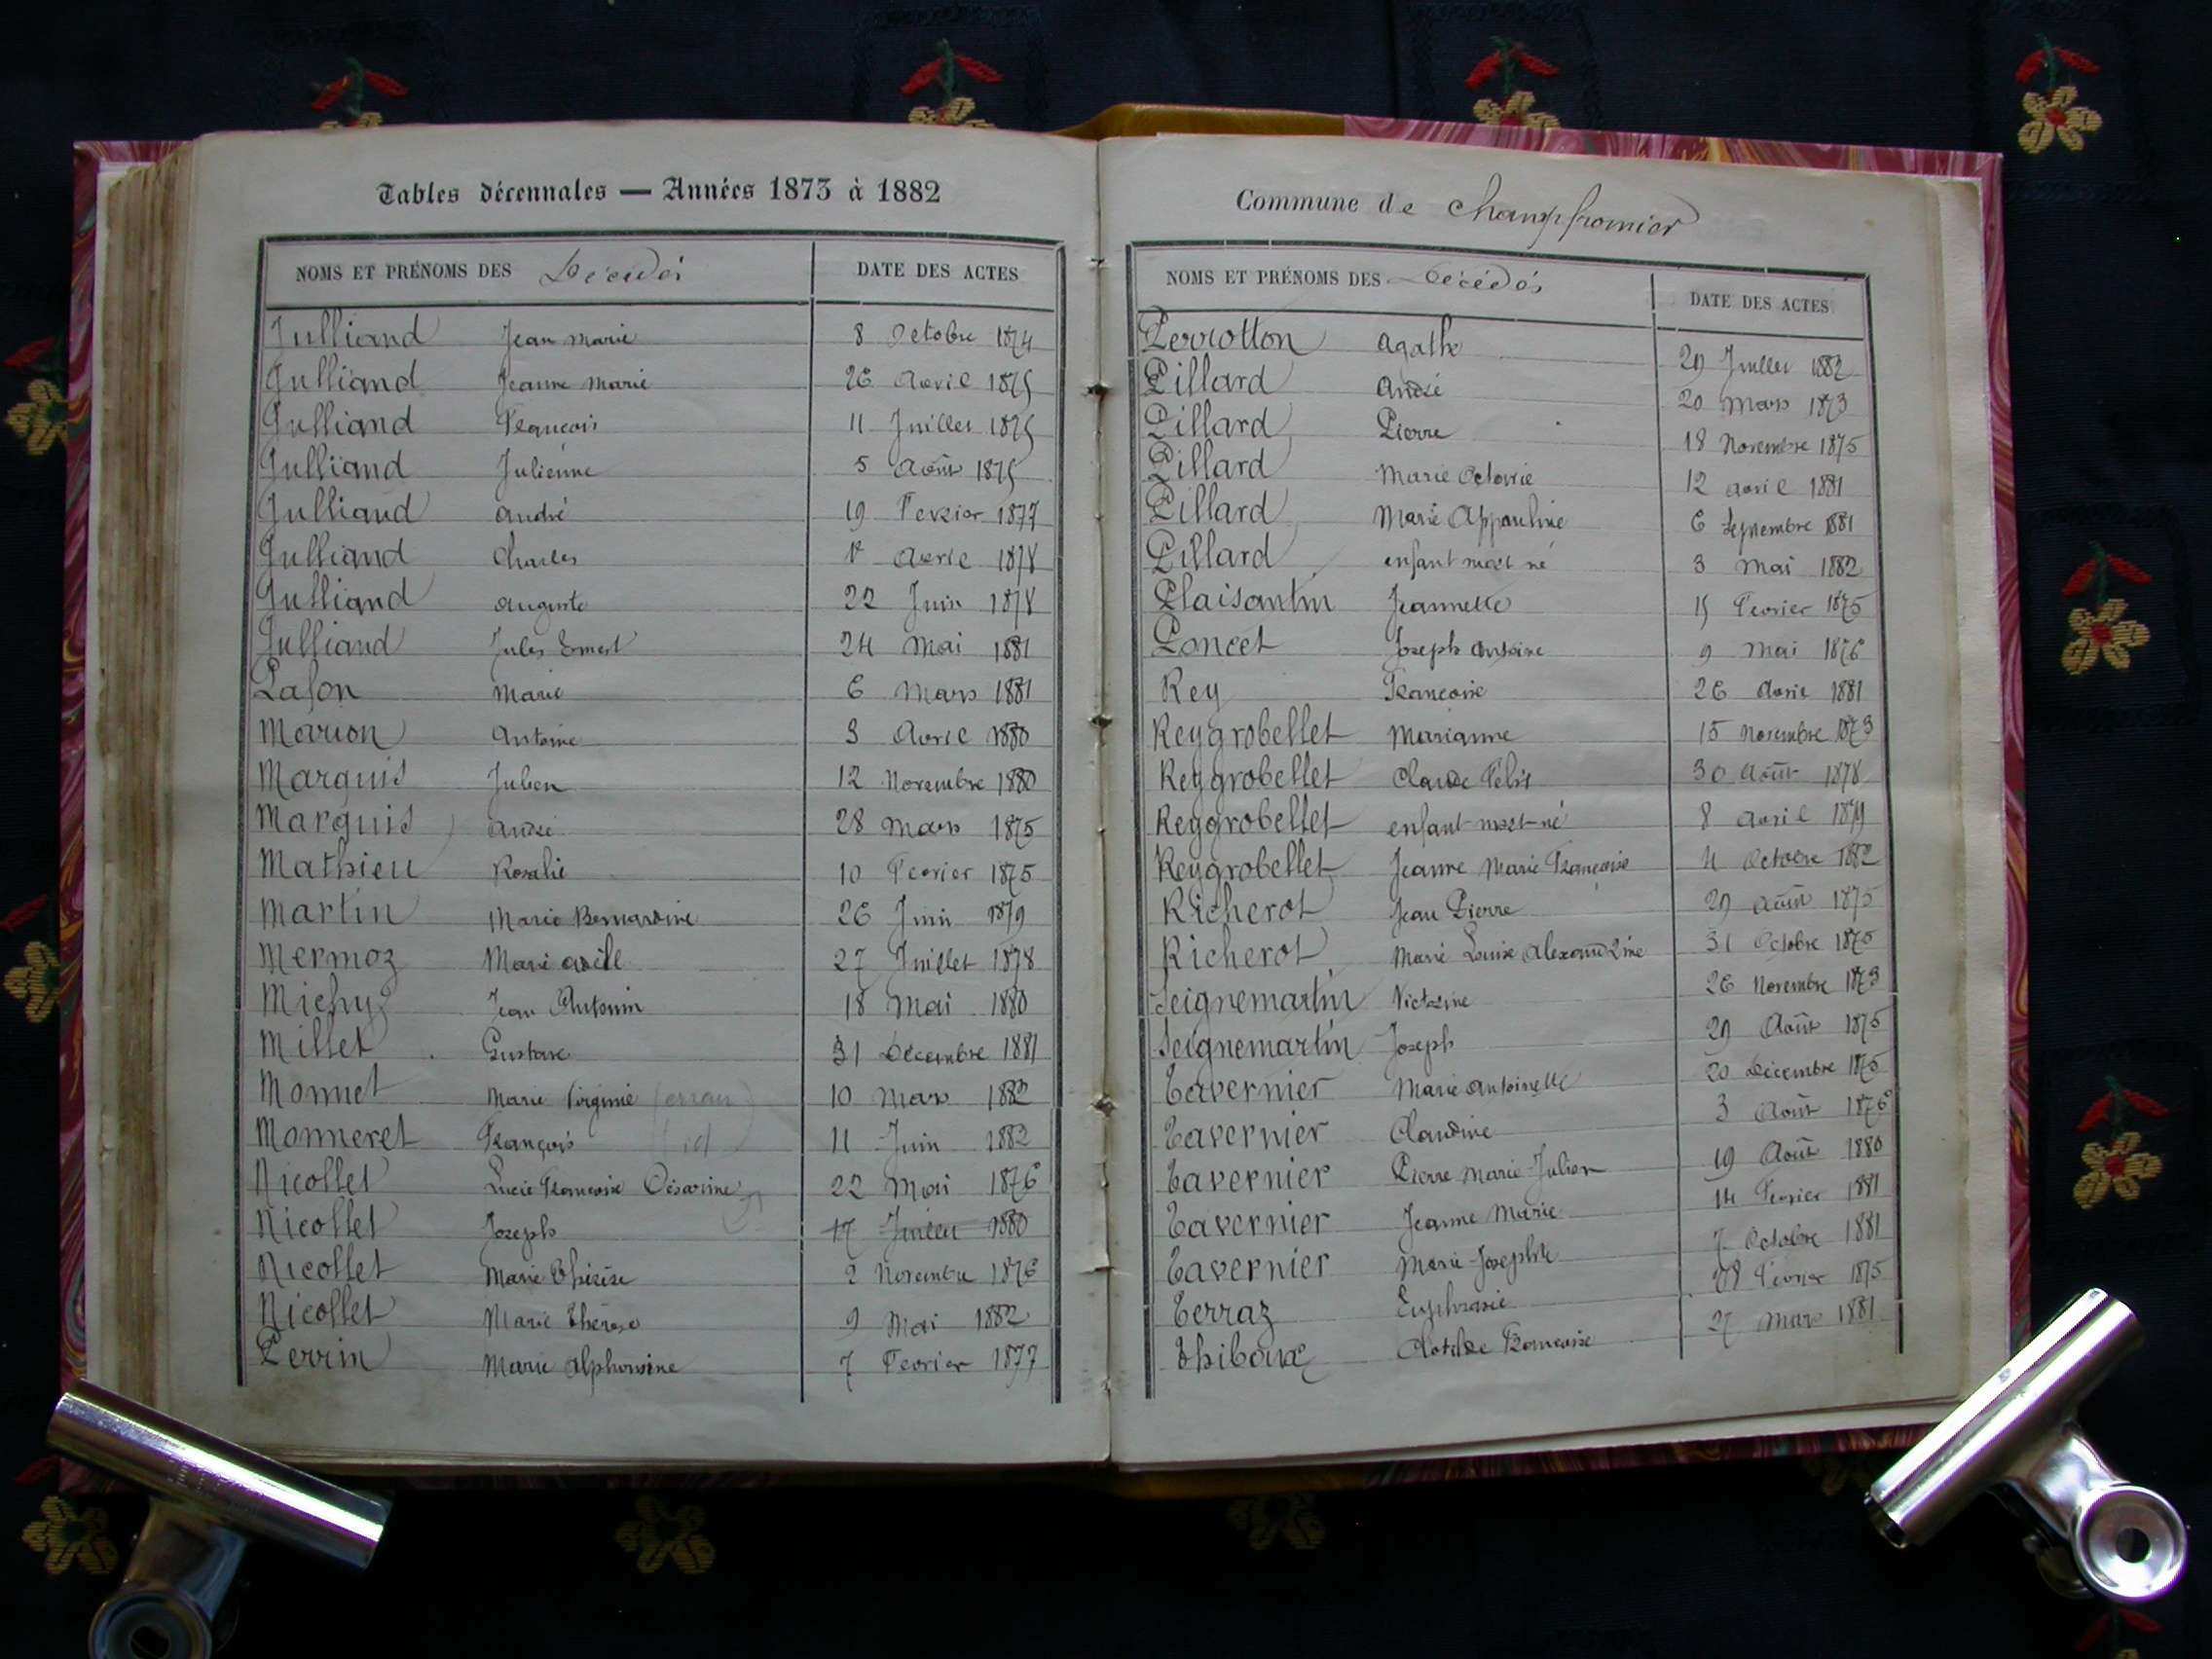 Tables décennales — Années 1873 à 1882
NOMS ET PRÉNOMS DES Décédés DATE DES ACTES
Julliand Jean Marie 8 Octobre 1874
Julliand Jeanne Marie 26 Avril 1875
Julliand François 11 Juillet 1875
Julliand Julienne 5 Août 1875
Julliand André 19 Fevrier 1877
Julliand Charles Avril 1878
Julliand Auguste 22 Juin 1878
Julliand Jules Ernest 24 Mai 1881
Lafon Marie 6 Mars 1881
Marion Antoine 3 Avril 1880
Marquis Julien 12 Novembre 1880
Marquis André 28 Mars 1875
Mathieu Rosalie 10 Fevrier 1875
Martin Marie Bernardine 26 Juin 1879
Mermoz Marie 27 Juillet 1878
Michuz Jean Antonin 18 Mai 1880
Millet Gustave 31 Décembre 1881
Monnet Marie Virginie (erreur) 10 Mars 1882
Monneret François (id) 11 Juin 1882
Nicollet Lucie Françoise Césarine 22 Mai 1876
Nicollet Joseph 17 Juillet 1880
Nicollet Marie Thérèse 2 Novembre 1876
Nicollet Marie Thérèse 9 Mai 1882
Perrin Marie Alphonsine 7 Fevrier 1877
Commune de Champfromier
NOMS ET PRÉNOMS DES Décédés DATE DES ACTES
Perrotton Agathe 29 Juillet 1882
Pillard André 20 Mars 1873
Pillard Pierre 18 Novembre 1875
Pillard Marie Octavie 12 Avril 1881
Pillard Marie Appouline 6 Septembre 1881
Pillard enfant mort né 3 Mai 1882
Plaisantin Jeannette 15 Fevrier 1875
Poncet Joseph Antoine 9 Mai 1876
Rey Françoise 26 Avril 1881
Reygrobellet Marianne 15 Novembre 1873
Reygrobellet Claude Félix 30 Août 1878
Reygrobellet enfant mort-né 8 Avril 1879
Reygrobellet Jeanne Marie Françoise Octobre 1882
Richerot Jean Pierre 29 Août 1875
Richerot Marie Louise Alexandrine 31 Octobre 1875
Seignemartin Victorine 26 Novembre 1873
Seignemartin Joseph 29 Août 1875
Tavernier Marie Antoinette 20 Décembre 1875
Tavernier Claudine 3 Août 1876
Tavernier Pierre Marie Julien 19 Août 1880
Tavernier Jeanne Marie 14 Fevrier 1881
Tavernier Marie Josephte 7 Octobre 1881
Terraz Euphrasie Février 1875
Thiboux Clotilde Françoise 27 Mars 1881